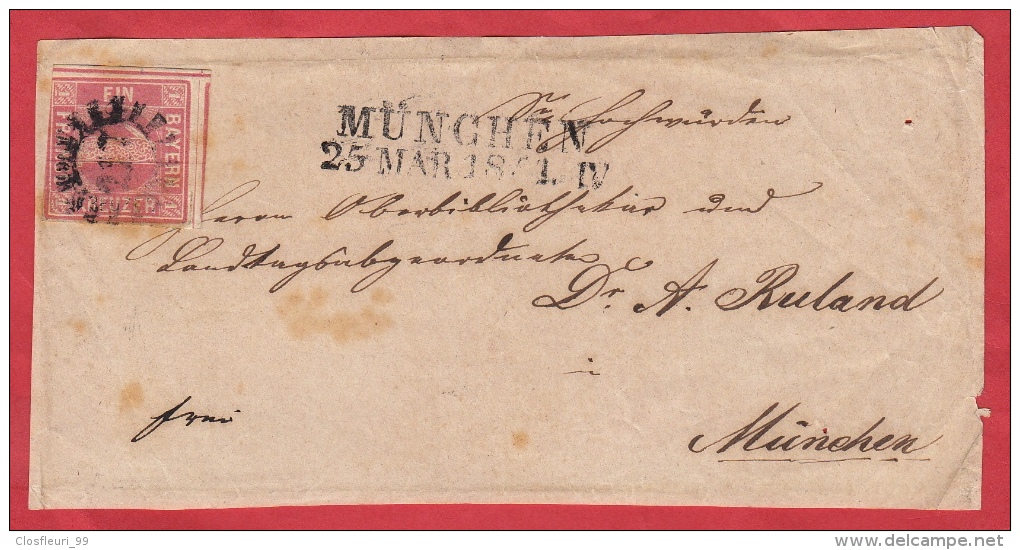 EIN
BAYERN
KREUZER
1
1
1
MÜNCHEN
25 MAR 18 1. IV
Sr Hochwürden
Herrn Oberbibliothekar und
Landtagsabgeordneten
Dr. A. Ruland
in
München
frei
Closfleuri_99
©delcampe.net